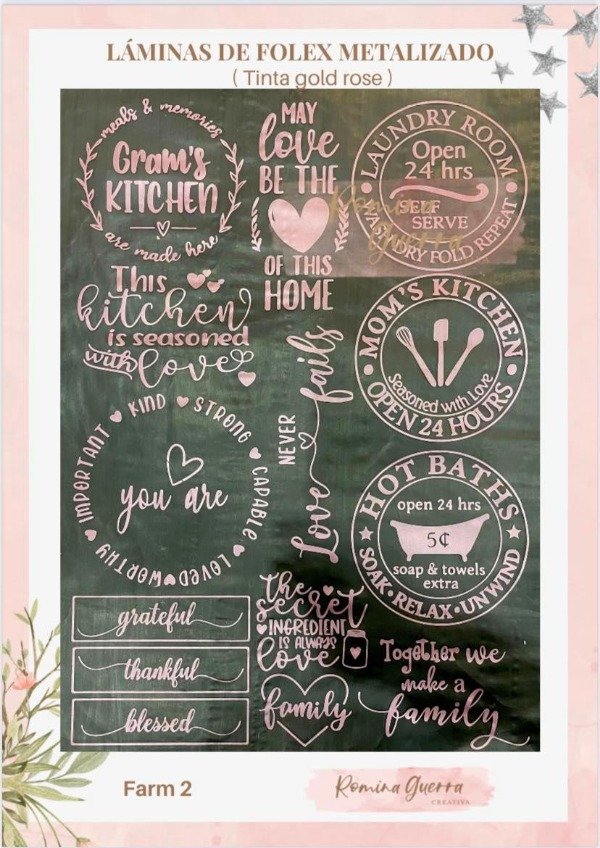 LÁMINAS DE FOLEX METALIZADO
( Tinta gold rose )
meals & memories
Gram's
KITCHEN
are made here
MAY
love
BE THE
OF THIS
HOME
LAUNDRY ROOM
Open
24 hrs
SELF
SERVE
WASH DRY FOLD REPEAT
Romina
Guerra
This
kitchen
is seasoned
with love
MOM'S KITCHEN
Seasoned with Love
OPEN 24 HOURS
KIND STRONG CAPABLE LOVED WORTHY IMPORTANT
you are
Love NEVER fails
HOT BATHS
open 24 hrs
5¢
soap & towels
extra
SOAK · RELAX · UNWIND
grateful
thankful
blessed
the
secret
INGREDIENT
IS ALWAYS
love
family
Together we
make a
family
Farm 2
Romina Guerra
CREATIVA